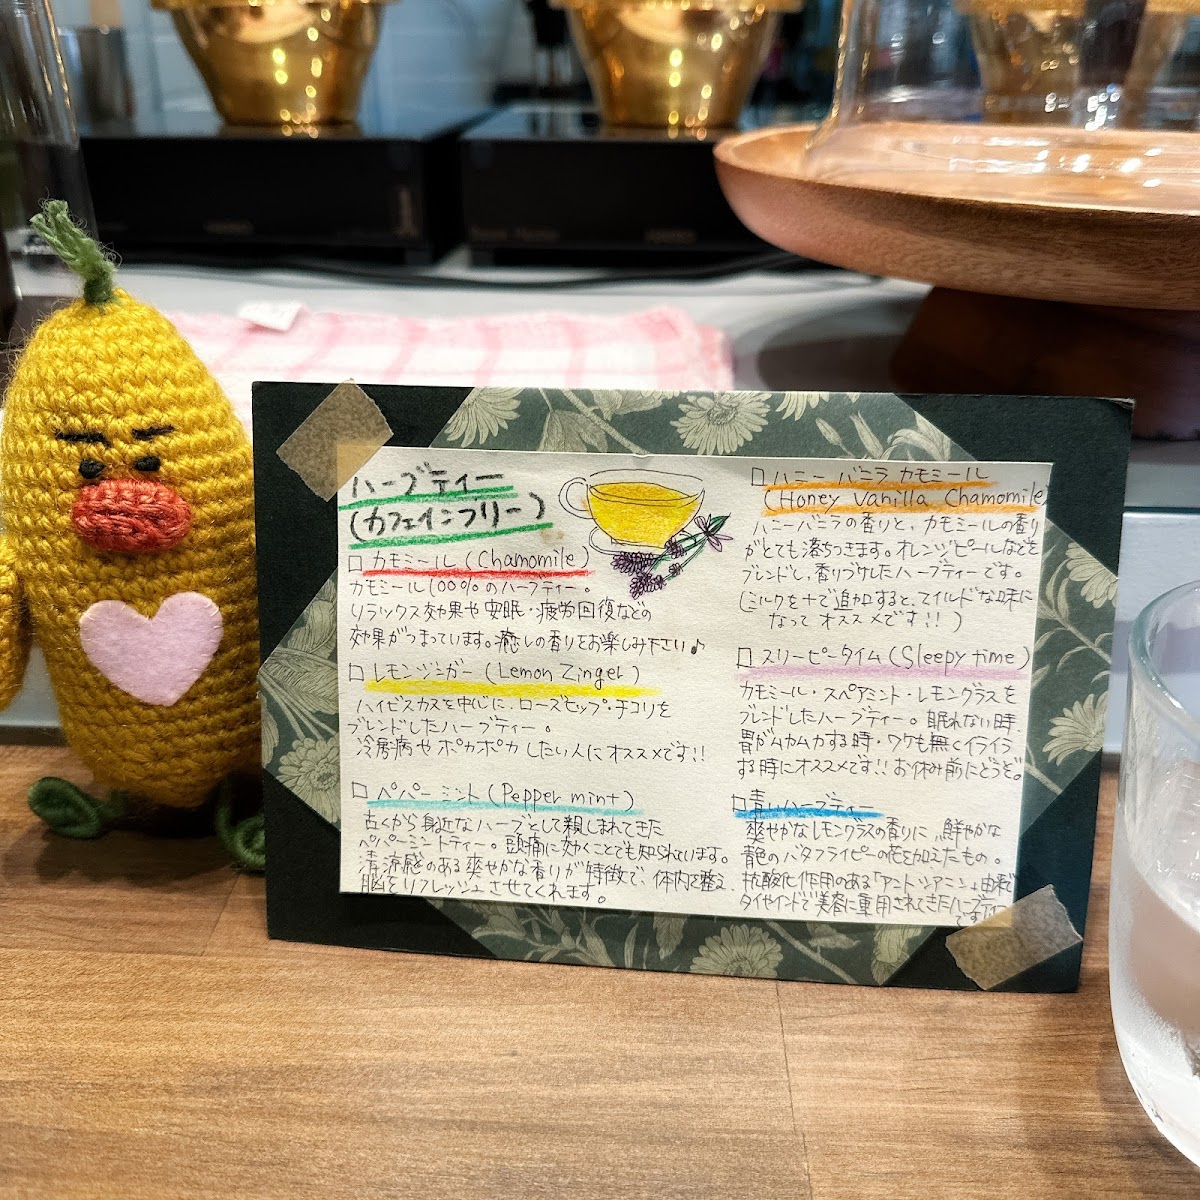 ハーブティー
(カフェインフリー)
□ カモミール (Chamomile)
カモミール100%のハーブティー。
リラックス効果や安眠・疲労回復などの
効果がつまっています。癒しの香りをお楽しみ下さい♪
□ レモンジンガー (Lemon Zinger)
ハイビスカスを中心に、ローズヒップ・チコリを
ブレンドしたハーブティー。
冷房病やポカポカしたい人にオススメです!!
□ ペパーミント (Peppermint)
古くから身近なハーブとして親しまれてきた
ペパーミントティー。頭痛に効くことでも知られています。
清涼感のある爽やかな香りが特徴で、体内を整え、
脳をリフレッシュさせてくれます。
□ ハニーバニラカモミール
(Honey Vanilla Chamomile)
ハニーバニラの香りと、カモミールの香り
がとても落ちつきます。オレンジピールなどを
ブレンドと、香りづけしたハーブティーです。
(ミルクを+で追加すると、マイルドな味に
なってオススメです!!)
□ スリーピータイム (Sleepy time)
カモミール・スペアミント・レモングラスを
ブレンドしたハーブティー。眠れない時、
胃がムカムカする時・ワケも無くイライラ
する時にオススメです!! お休み前にどうぞ。
□ 青いハーブティー
爽やかなレモングラスの香りに、鮮やかな
青色のバタフライピーの花を加えたもの。
抗酸化作用のある「アントシアニン」由来
タイやインドで美容に重用されてきたハーブティー
です